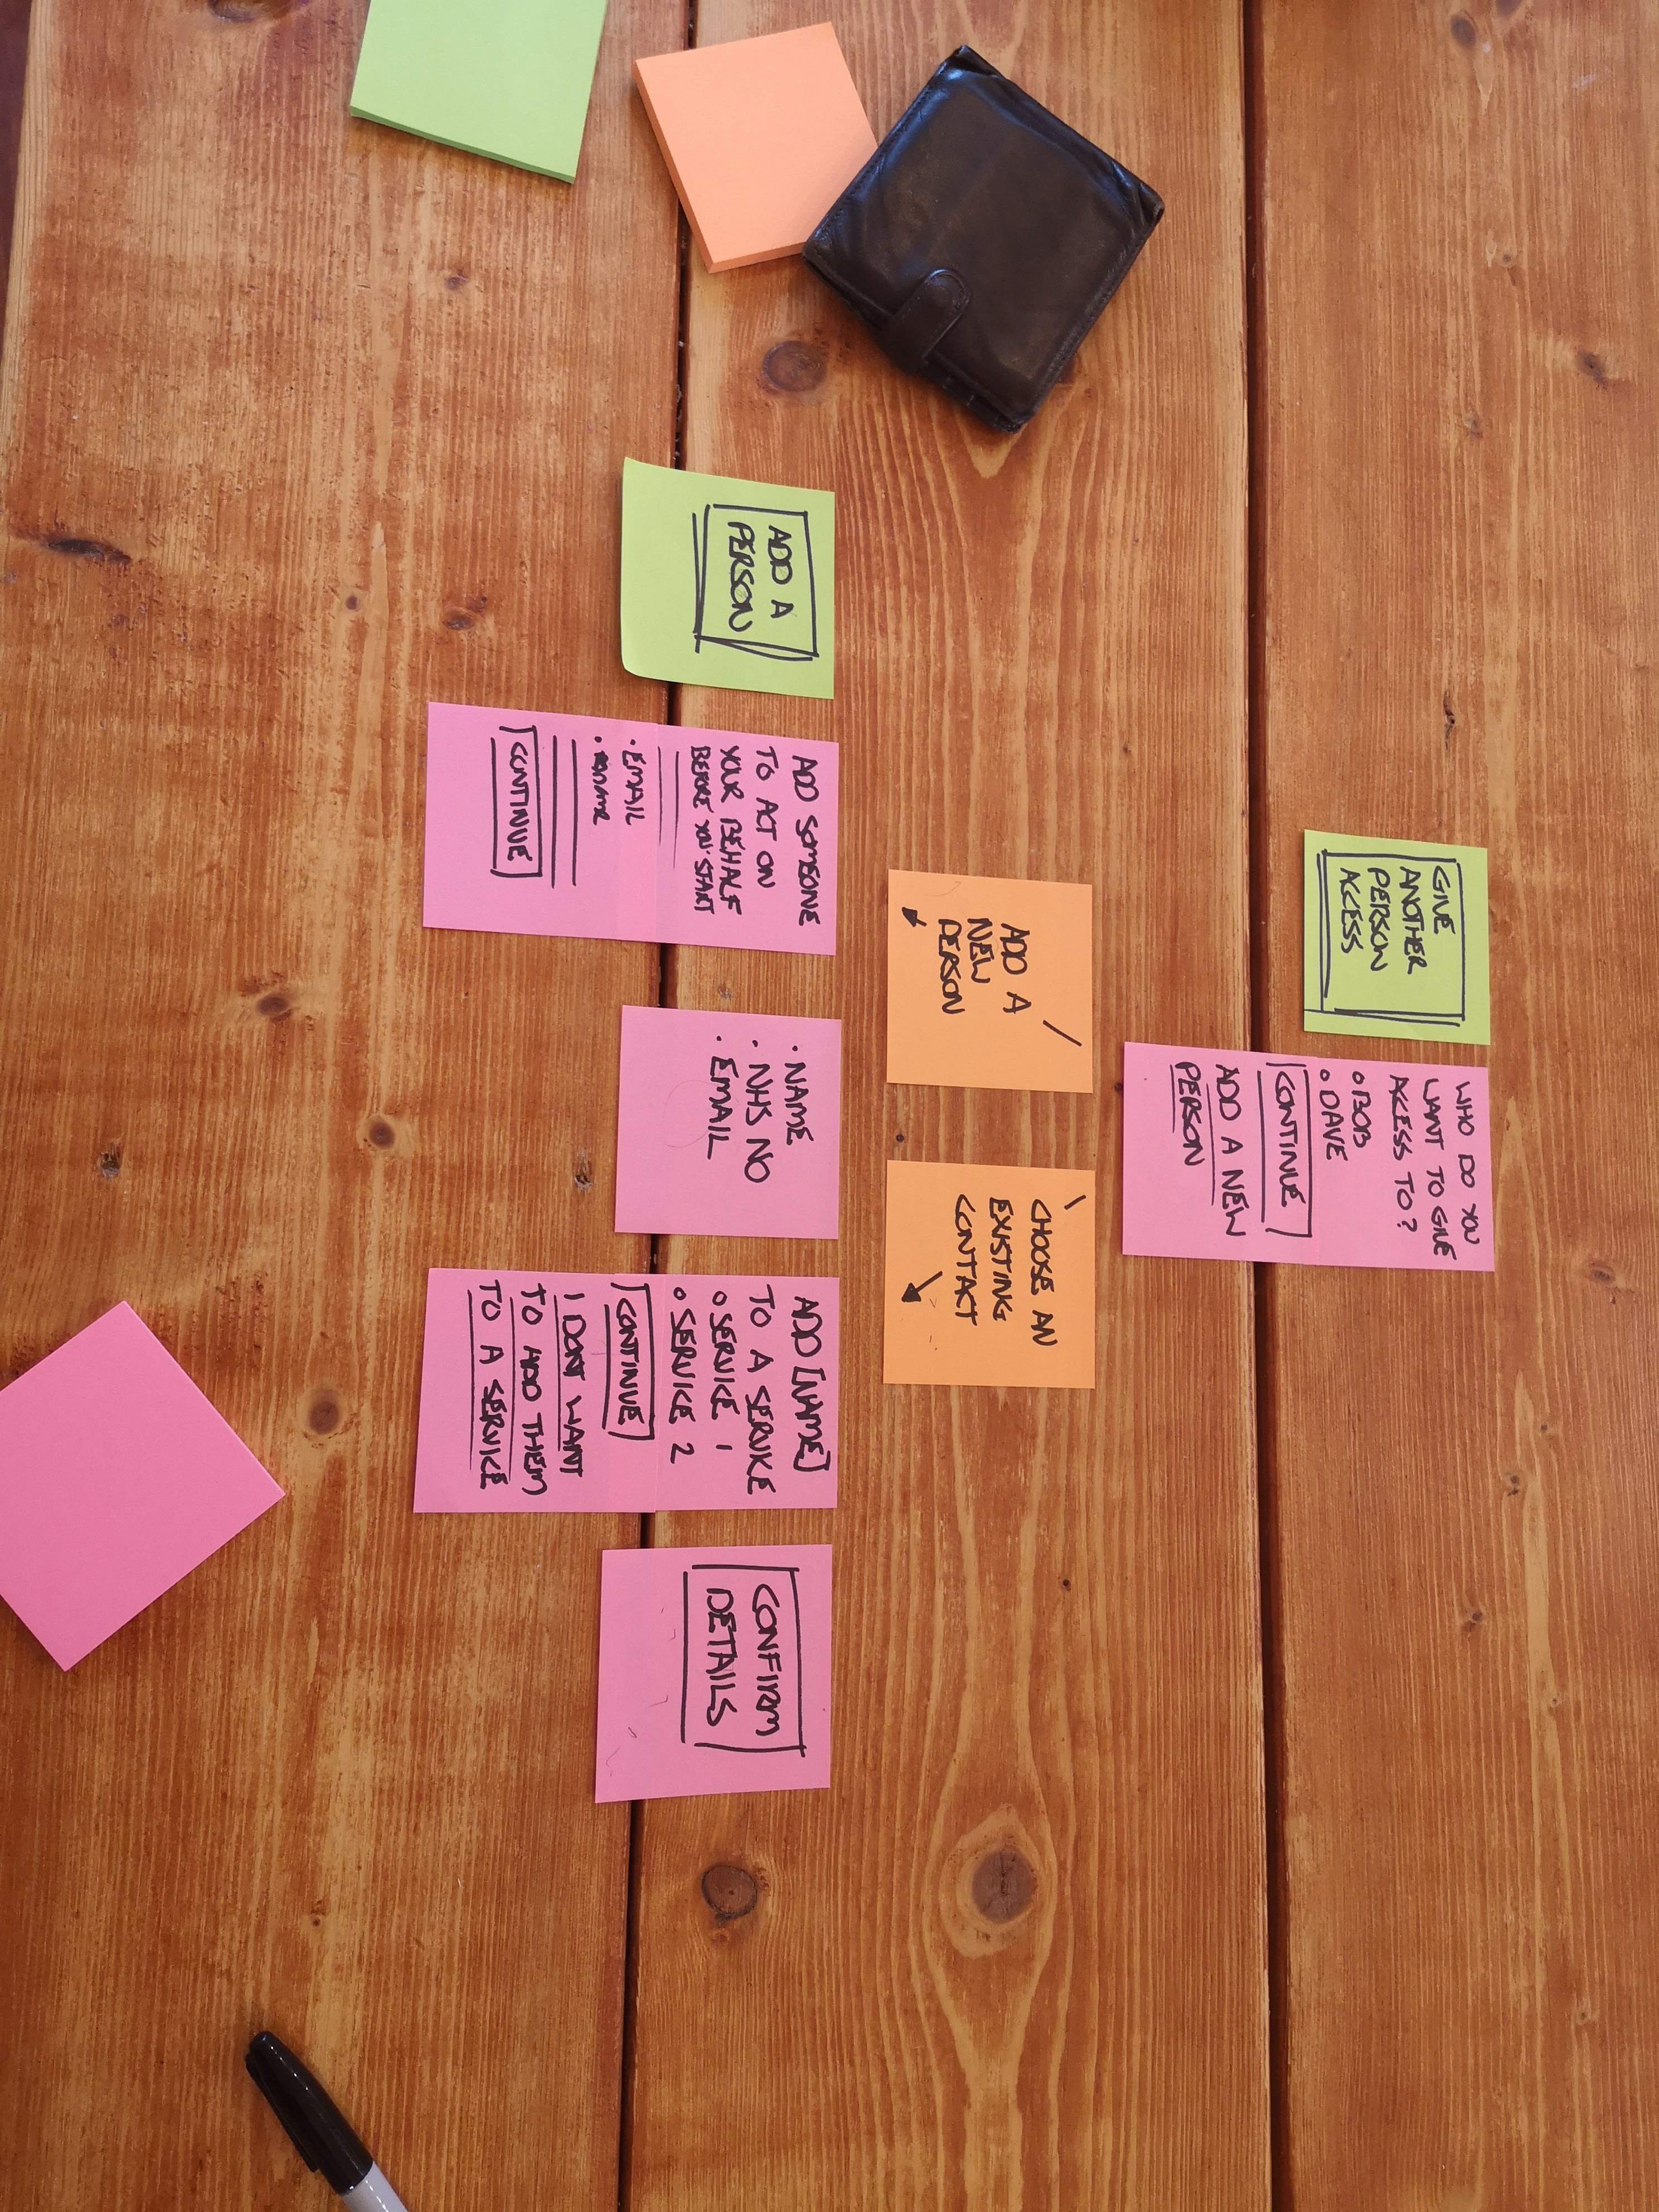 GIVE
ANOTHER
PERSON
ACCESS
WHO DO YOU
WANT TO GIVE
ACCESS TO?
○ BOB
○ DAVE
CONTINUE
ADD A NEW
PERSON
ADD A
NEW
PERSON
CHOOSE AN
EXISTING
CONTACT
ADD A
PERSON
ADD SOMEONE
TO ACT ON
YOUR BEHALF
BEFORE YOU START
• EMAIL
• NAME
CONTINUE
• NAME
• NHS NO
• EMAIL
ADD [NAME]
TO A SERVICE
○ SERVICE 1
○ SERVICE 2
CONTINUE
I DONT WANT
TO ADD THEM
TO A SERVICE
CONFIRM
DETAILS